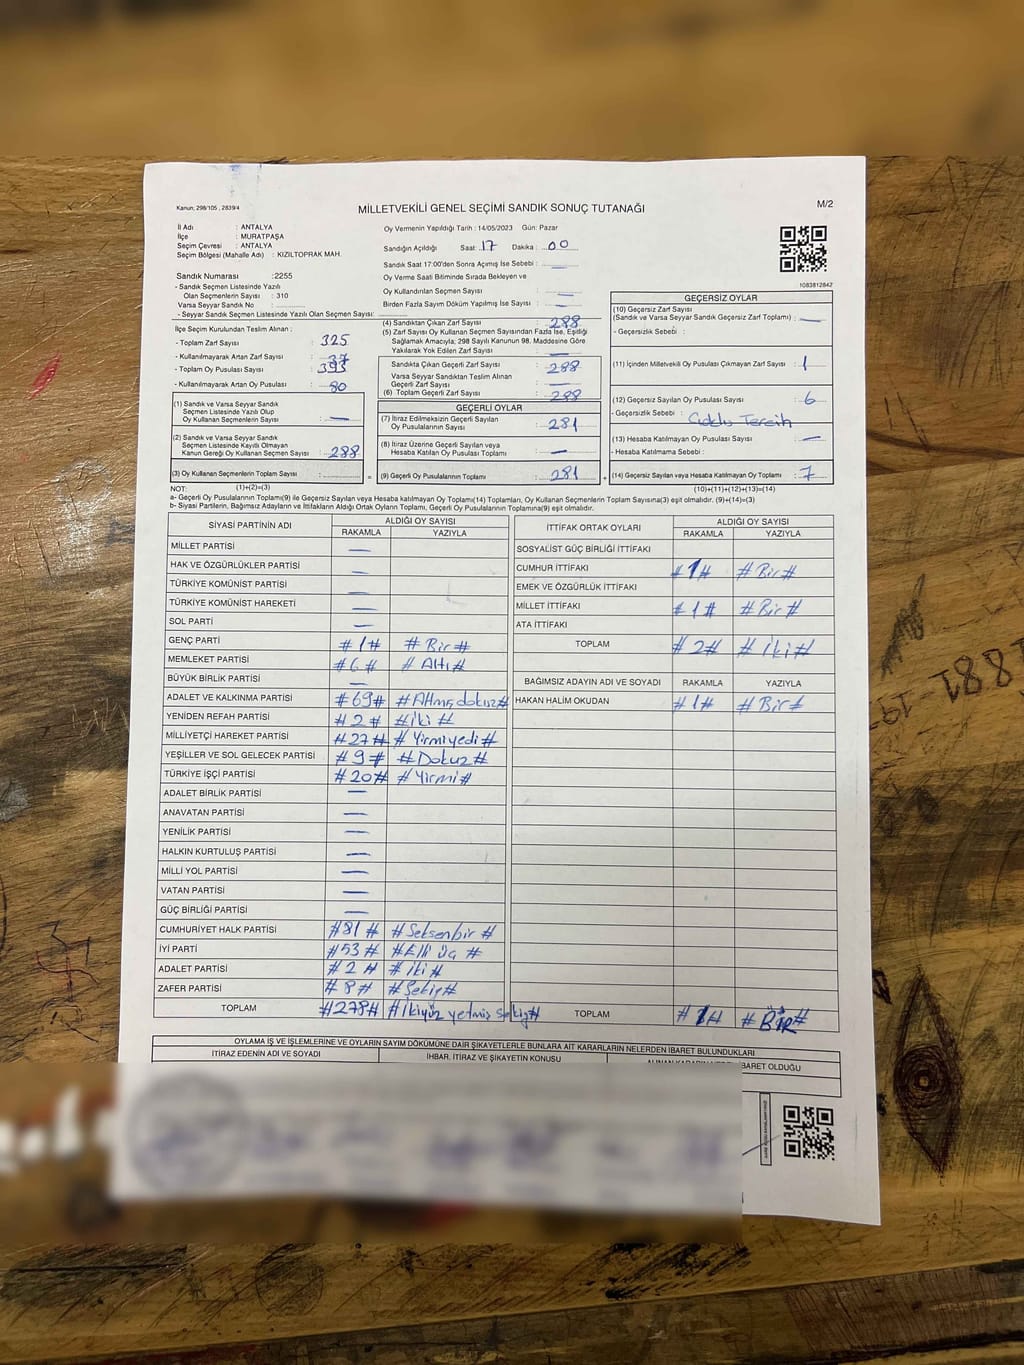 Kanun; 298/105 , 2839/4
MİLLETVEKİLİ GENEL SEÇİMİ SANDIK SONUÇ TUTANAĞI
M/2
İl Adı : ANTALYA
İlçe : MURATPAŞA
Seçim Çevresi : ANTALYA
Seçim Bölgesi (Mahalle Adı) : KIZILTOPRAK MAH.
Sandık Numarası :2255
- Sandık Seçmen Listesinde Yazılı
Olan Seçmenlerin Sayısı : 310
Varsa Seyyar Sandık No :
- Seyyar Sandık Seçmen Listesinde Yazılı Olan Seçmen Sayısı:
Oy Vermenin Yapıldığı Tarih : 14/05/2023 Gün: Pazar
Sandığın Açıldığı Saat: 17 Dakika : 00
Sandık Saat 17:00'den Sonra Açımış İse Sebebi : —
Oy Verme Saati Bitiminde Sırada Bekleyen ve
Oy Kullandırılan Seçmen Sayısı : —
Birden Fazla Sayım Döküm Yapılmış İse Sayısı : —
1083812842
İlçe Seçim Kurulundan Teslim Alınan :
- Toplam Zarf Sayısı : 325
- Kullanılmayarak Artan Zarf Sayısı : 37
- Toplam Oy Pusulası Sayısı : 393
- Kullanılmayarak Artan Oy Pusulası : 80
(1) Sandık ve Varsa Seyyar Sandık
Seçmen Listesinde Yazılı Olup
Oy Kullanan Seçmenlerin Sayısı : —
(2) Sandık ve Varsa Seyyar Sandık
Seçmen Listesinde Kayıtlı Olmayan
Kanun Gereği Oy Kullanan Seçmen Sayısı : 288
(3) Oy Kullanan Seçmenlerin Toplam Sayısı :
(4) Sandıktan Çıkan Zarf Sayısı : 288
(5) Zarf Sayısı Oy Kullanan Seçmen Sayısından Fazla İse, Eşitliği
Sağlamak Amacıyla; 298 Sayılı Kanunun 98. Maddesine Göre
Yakılarak Yok Edilen Zarf Sayısı : —
Sandıkta Çıkan Geçerli Zarf Sayısı : 288
Varsa Seyyar Sandıktan Teslim Alınan
Geçerli Zarf Sayısı : —
(6) Toplam Geçerli Zarf Sayısı : 288
GEÇERLİ OYLAR
(7) İtiraz Edilmeksizin Geçerli Sayılan
Oy Pusulalarının Sayısı : 281
(8) İtiraz Üzerine Geçerli Sayılan veya
Hesaba Katılan Oy Pusulası Toplamı : —
= (9) Geçerli Oy Pusulalarının Toplamı : 281 +
GEÇERSİZ OYLAR
(10) Geçersiz Zarf Sayısı
(Sandık ve Varsa Seyyar Sandık Geçersiz Zarf Toplamı) : —
- Geçersizlik Sebebi :
(11) İçinden Milletvekili Oy Pusulası Çıkmayan Zarf Sayısı : 1
(12) Geçersiz Sayılan Oy Pusulası Sayısı : 6
- Geçersizlik Sebebi : Tercih
(13) Hesaba Katılmayan Oy Pusulası Sayısı : —
- Hesaba Katılmama Sebebi :
(14) Geçersiz Sayılan veya Hesaba Katılmayan Oy Toplamı : 7
NOT: (1)+(2)=(3) (10)+(11)+(12)+(13)=(14)
a- Geçerli Oy Pusulalarının Toplamı(9) ile Geçersiz Sayılan veya Hesaba katılmayan Oy Toplamı(14) Toplamları, Oy Kullanan Seçmenlerin Toplam Sayısına(3) eşit olmalıdır. (9)+(14)=(3)
b- Siyasi Partilerin, Bağımsız Adayların ve İttifakların Aldığı Ortak Oyların Toplamı, Geçerli Oy Pusulalarının Toplamına(9) eşit olmalıdır.
SİYASİ PARTİNİN ADI ALDIĞI OY SAYISI
RAKAMLA YAZIYLA
MİLLET PARTİSİ —
HAK VE ÖZGÜRLÜKLER PARTİSİ —
TÜRKİYE KOMÜNİST PARTİSİ —
TÜRKİYE KOMÜNİST HAREKETİ —
SOL PARTİ —
GENÇ PARTİ #1# #Bir#
MEMLEKET PARTİSİ #6# #Altı#
BÜYÜK BİRLİK PARTİSİ —
ADALET VE KALKINMA PARTİSİ #69# #Altmış dokuz#
YENİDEN REFAH PARTİSİ #2# #İki#
MİLLİYETÇİ HAREKET PARTİSİ #27# #Yirmiyedi#
YEŞİLLER VE SOL GELECEK PARTİSİ #9# #Dokuz#
TÜRKİYE İŞÇİ PARTİSİ #20# #Yirmi#
ADALET BİRLİK PARTİSİ —
ANAVATAN PARTİSİ —
YENİLİK PARTİSİ —
HALKIN KURTULUŞ PARTİSİ —
MİLLİ YOL PARTİSİ —
VATAN PARTİSİ —
GÜÇ BİRLİĞİ PARTİSİ —
CUMHURİYET HALK PARTİSİ #81# #Seksenbir#
İYİ PARTİ #53# #Elli üç#
ADALET PARTİSİ #2# #İki#
ZAFER PARTİSİ #8# #Sekiz#
TOPLAM #278# #İkiyüz yetmiş sekiz#
İTTİFAK ORTAK OYLARI ALDIĞI OY SAYISI
RAKAMLA YAZIYLA
SOSYALİST GÜÇ BİRLİĞİ İTTİFAKI
CUMHUR İTTİFAKI #1# #Bir#
EMEK VE ÖZGÜRLÜK İTTİFAKI
MİLLET İTTİFAKI #1# #Bir#
ATA İTTİFAKI
TOPLAM #2# #İki#
BAĞIMSIZ ADAYIN ADI VE SOYADI RAKAMLA YAZIYLA
HAKAN HALİM OKUDAN #1# #Bir#
TOPLAM #1# #BİR#
OYLAMA İŞ VE İŞLEMLERİNE VE OYLARIN SAYIM DÖKÜMÜNE DAİR ŞİKAYETLERLE BUNLARA AİT KARARLARIN NELERDEN İBARET BULUNDUKLARI
İTİRAZ EDENİN ADI VE SOYADI İHBAR, İTİRAZ VE ŞİKAYETİN KONUSU İBARET OLDUĞU
1881-19